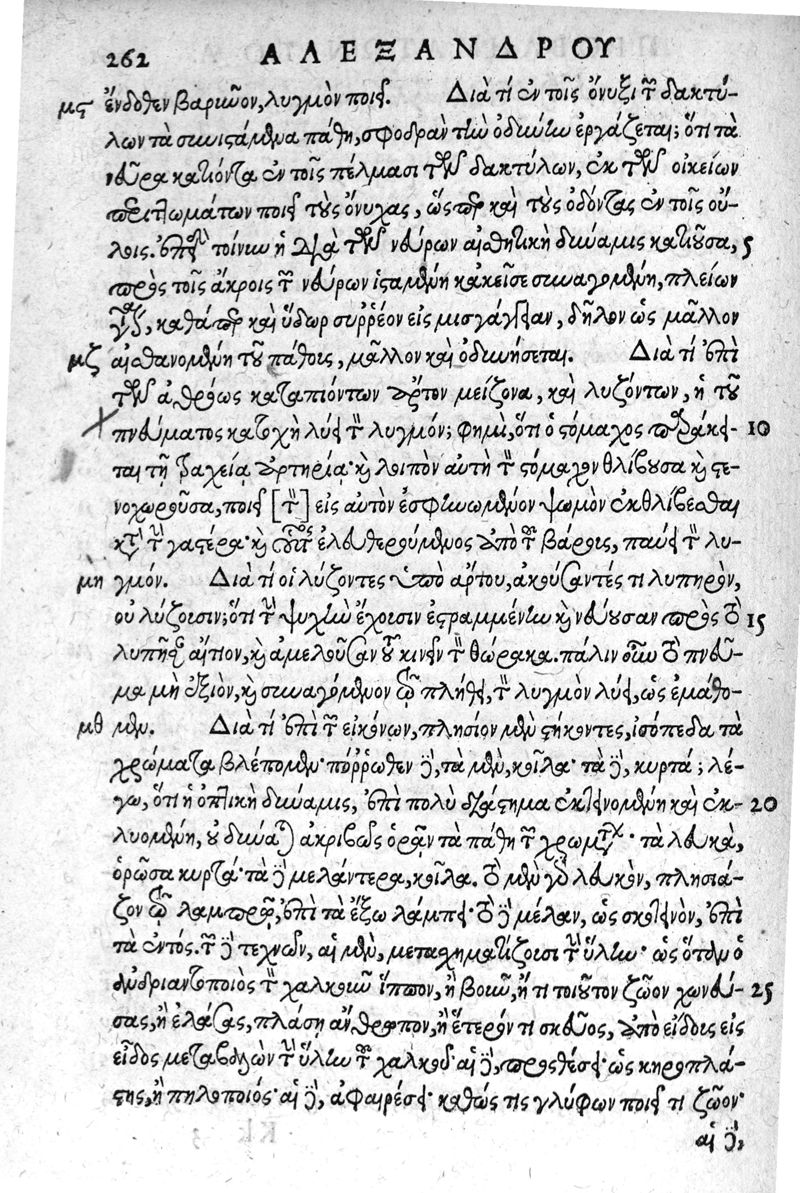 262 ΑΛΕΞΑΝΔΡΟΥ
μϛ ἔνδοθεν βαρυῦον, λυγμὸν ποιεῖ. Διὰ τί ἐν τοῖς ὄνυξι τῶν δακτύ-
λων τὰ συνιστάμενα πάθη, σφοδρὰν τὴν ὀδύνην ἐργάζεται; ὅτι τὰ
νεῦρα κατιόντα ἐν τοῖς πέλμασι τῶν δακτύλων, ἐκ τῶν οἰκείων
περιττωμάτων ποιεῖ τοὺς ὄνυχας, ὥσπερ καὶ τοὺς ὀδόντας ἐν τοῖς οὔ-
λοις. ἐπεὶ τοίνυν ἡ διὰ τῶν νεύρων αἰσθητικὴ δύναμις κατιοῦσα, 5
πρὸς τοῖς ἄκροις τῶν νεύρων ἱσταμένη κἀκεῖσε συναγομένη, πλείων
γίνεται, καθάπερ καὶ ὕδωρ συῤῥέον εἰς μισγάγγειαν, δῆλον ὡς μᾶλλον
μζ αἰσθανομένη τοῦ πάθους, μᾶλλον καὶ ὀδυνήσεται. Διὰ τί ἐπὶ
τῶν ἀθρόως καταπιόντων ἄρτον μείζονα, καὶ λυζόντων, ἡ τοῦ
πνεύματος κατοχὴ λύει τὸν λυγμόν; φημὶ, ὅτι ὁ στόμαχος παράκει- 10
ται τῇ τραχείᾳ ἀρτηρίᾳ· καὶ λοιπὸν αὐτὴ τὸν στόμαχον θλίβουσα καὶ στε-
νοχωροῦσα, ποιεῖ [τὸν] εἰς αὐτὸν ἐσφηνωμένον ψωμὸν ἐκθλίβεσθαι
κατὰ τὴν γαστέρα· καὶ οὕτως ἐλευθερούμενος ἀπὸ τοῦ βάρους, παύει τὸν λυ-
μη γμόν. Διὰ τί οἱ λύζοντες ὑπὸ ἄρτου, ἀκούσαντές τι λυπηρὸν,
οὐ λύζουσιν; ὅτι τὴν ψυχὴν ἔχουσιν ἐστραμμένην καὶ νεύουσαν πρὸς τὸ 15
λυπῆσαν αἴτιον, καὶ ἀμελοῦσαν τοῦ κινεῖν τὸν θώρακα. πάλιν οὖν τὸ πνεῦ-
μα μὴ ἐξιὸν, καὶ συναγόμενον τῷ πλήθει, τὸν λυγμὸν λύει, ὡς ἐμάθο-
μθ μεν. Διὰ τί ἐπὶ τῶν εἰκόνων, πλησίον μὲν στήκοντες, ἰσόπεδα τὰ
χρώματα βλέπομεν· πόῤῥωθεν δὲ, τὰ μὲν, κοῖλα· τὰ δὲ, κυρτά; λέ-
γω, ὅτι ἡ ὀπτικὴ δύναμις, ἐπὶ πολὺ διάστημα ἐκτεινομένη καὶ ἐκ- 20
λυομένη, οὐ δύναται ἀκριβῶς ὁρᾶν τὰ πάθη τῶν χρωμάτων· τὰ λευκὰ,
ὁρῶσα κυρτά· τὰ δὲ μελάντερα, κοῖλα. τὸ μὲν γὰρ λευκὸν, πλησιά-
ζον τῷ λαμπρῷ, ἐπὶ τὰ ἔξω λάμπει· τὸ δὲ μέλαν, ὡς σκοτεινὸν, ἐπὶ
τὰ ἐντός. τῶν δὲ τεχνῶν, αἱ μὲν, μετασχηματίζουσι τὴν ὕλην· ὡς ὅταν ὁ
ἀνδριαντοποιὸς τὸν χαλκοῦν ἵππον, ἢ βοῦν, ἤ τι τοιοῦτον ζῷον χωνεύ- 25
σας, ἢ ἐλάσας, πλάσῃ ἄνθρωπον, ἢ ἕτερόν τι σκεῦος, ἀπὸ εἴδους εἰς
εἶδος μεταβαλὼν τὴν ὕλην τοῦ χαλκοῦ· αἱ δὲ, προσθέσει· ὡς κηροπλά-
στης, ἢ πηλοποιός· αἱ δὲ, ἀφαιρέσει· καθώς τις γλύφων ποιεῖ τι ζῷον·
αἱ δὲ,